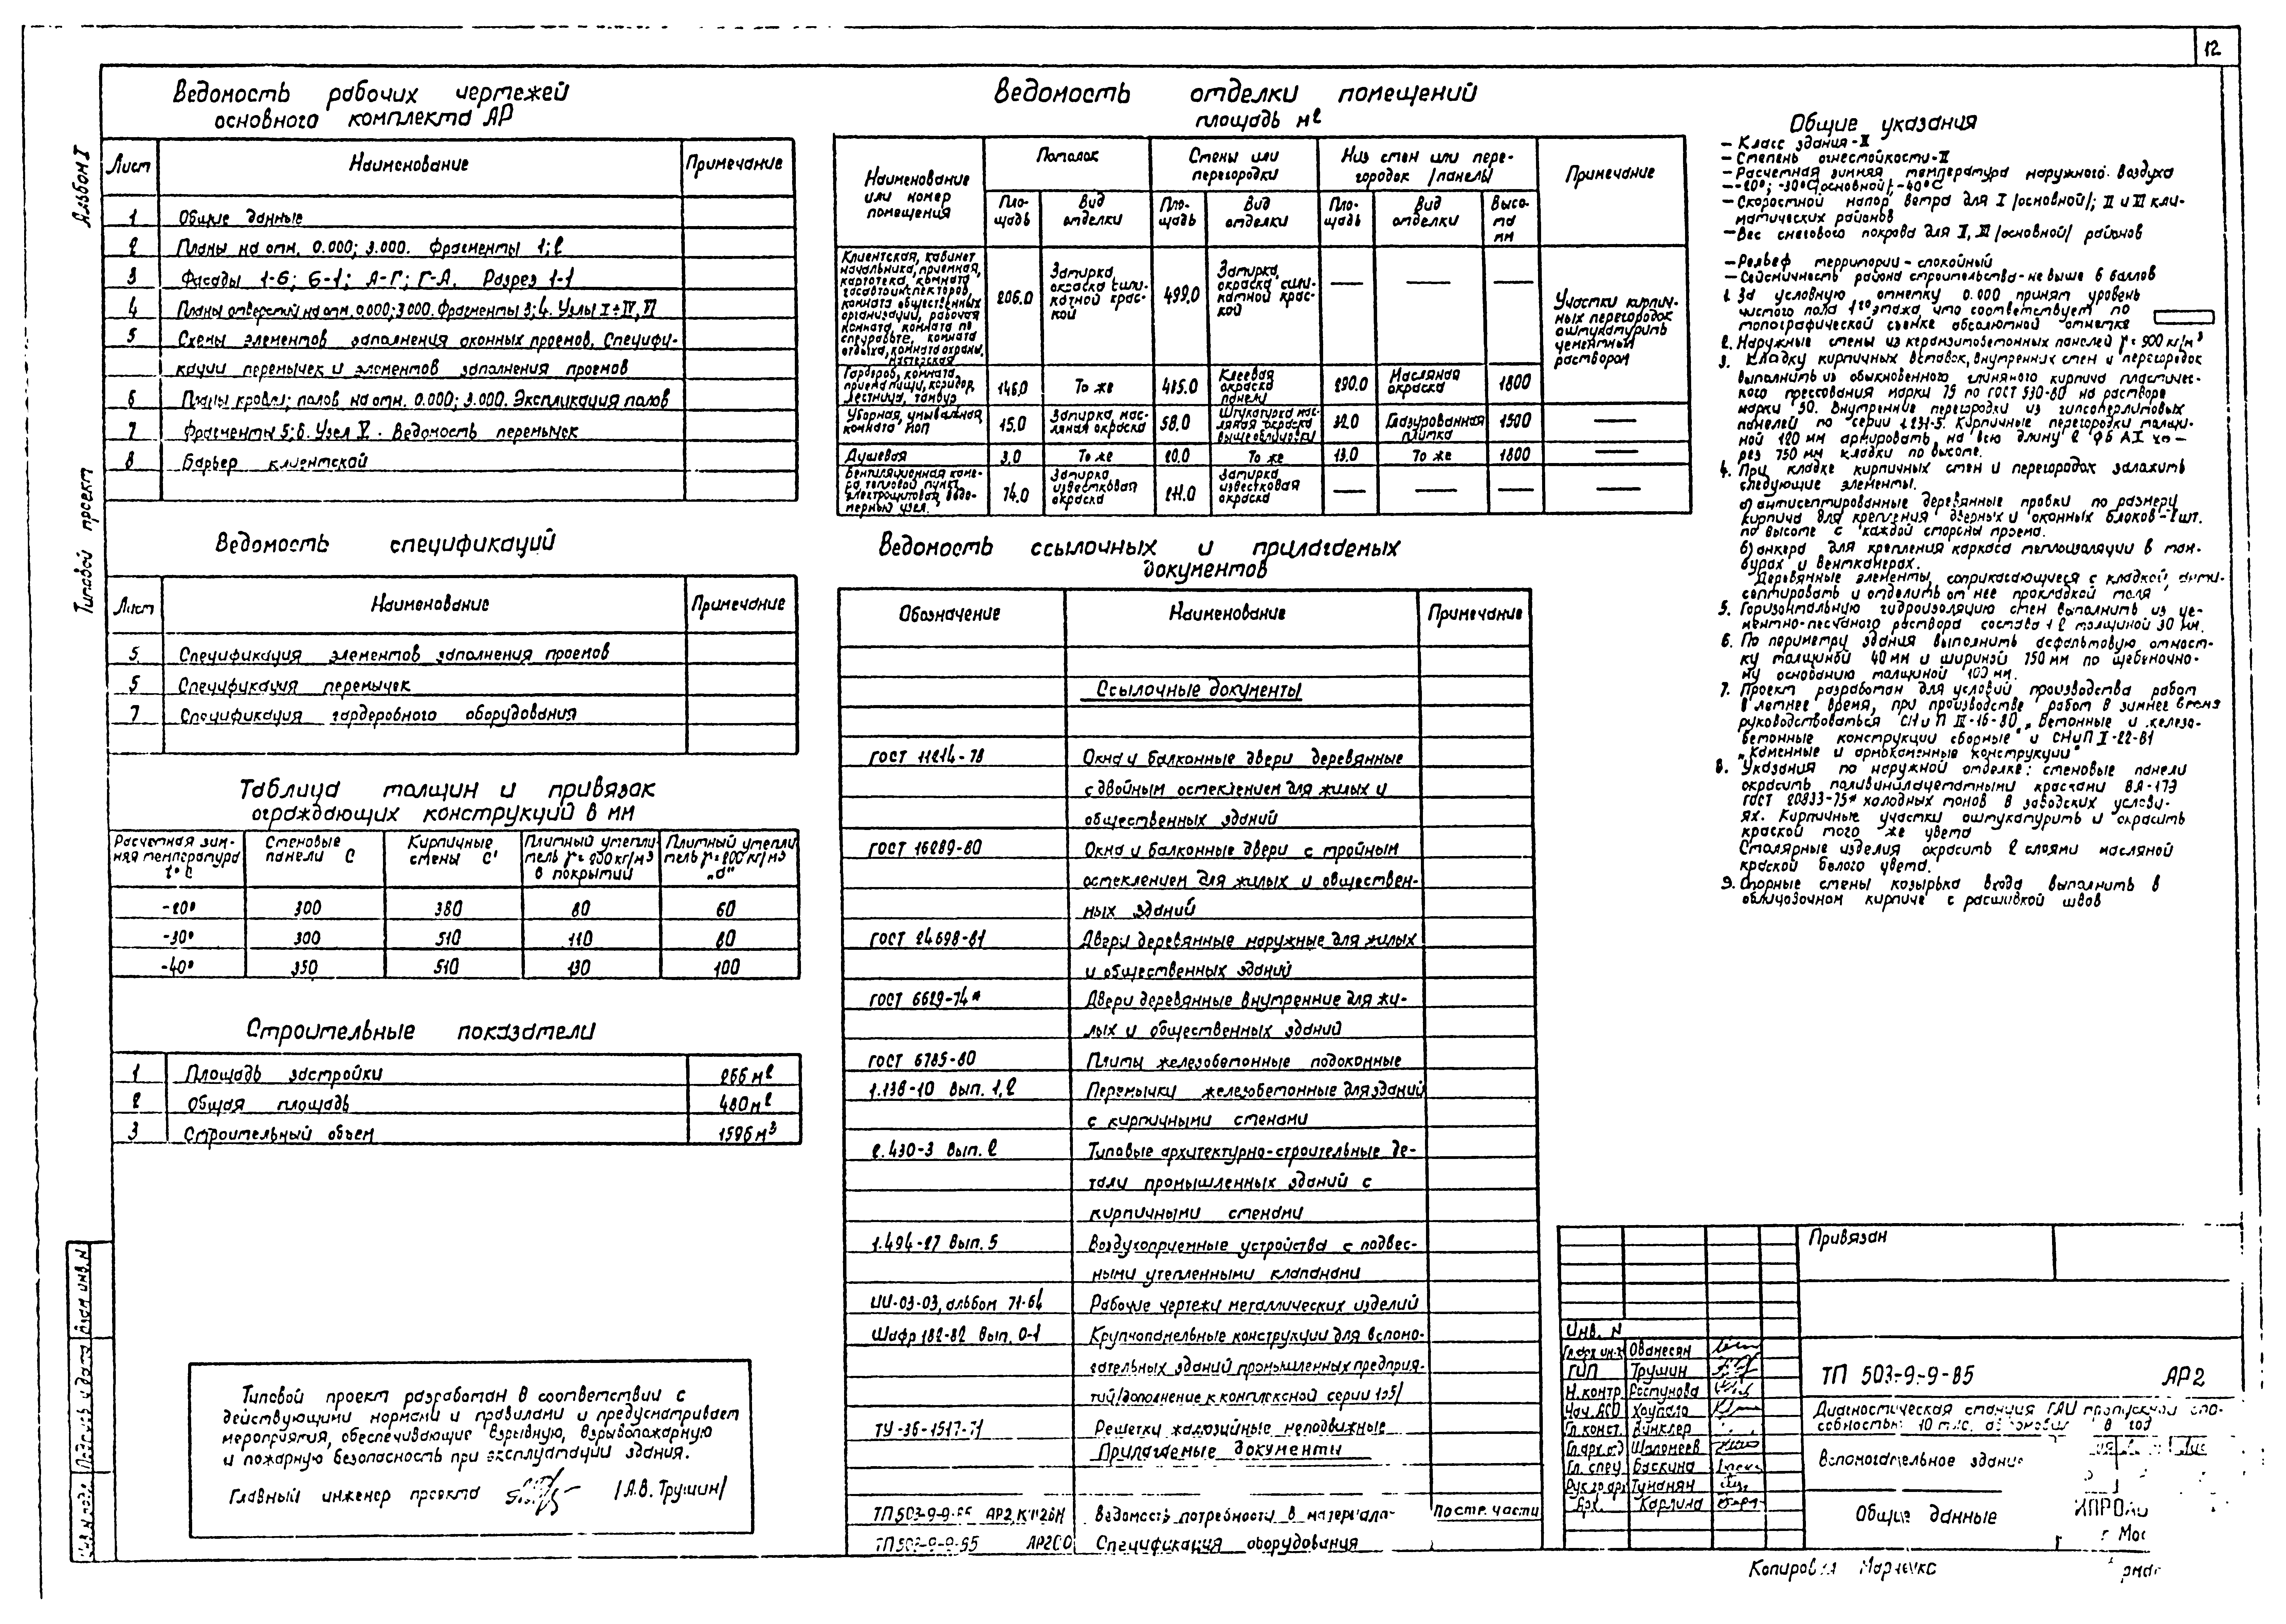 12
Альбом I
Типовой проект
Ведомость рабочих чертежей
основного комплекта АР
Лист Наименование Примечание
1 Общие данные
2 Планы на отм. 0.000; 3.000. Фрагменты 1; 2
3 Фасады 1-6; 6-1; А-Г; Г-А. Разрез 1-1
4 Планы отверстий на отм. 0.000; 3.000. Фрагменты 3; 4. Узлы I÷IV, VI
5 Схемы элементов заполнения оконных проемов. Специфи-
кации перемычек и элементов заполнения проемов
6 Планы кровли; полов на отм. 0.000; 3.000. Экспликация полов
7 Фрагменты 5; 6. Узел V. Ведомость перемычек
8 Барьер клиентской
Ведомость спецификаций
Лист Наименование Примечание
5 Спецификация элементов заполнения проемов
5 Спецификация перемычек
7 Спецификация гардеробного оборудования
Таблица толщин и привязок
ограждающих конструкций в мм
Расчетная зим-
няя температура
t° С
Стеновые
панели С
Кирпичные
стены С'
Плитный утепли
тель γ=200кг/м3
в покрытии
Плитный утепли
тель γ=200кг/м3
„d"
-20° 300 380 80 60
-30° 300 510 110 80
-40° 350 510 130 100
Строительные показатели
1 Площадь застройки 266 м2
2 Общая площадь 480 м2
3 Строительный объем 1596 м3
Типовой проект разработан в соответствии с
действующими нормами и правилами и предусматривает
мероприятия, обеспечивающие взрывную, взрывопожарную
и пожарную безопасность при эксплуатации здания.
Главный инженер проекта /А.В. Трушин/
Ведомость отделки помещений
площадь м2
Наименование
или номер
помещения
Потолок
Стены или
перегородки
Низ стен или пере-
городок /панель/
Примечание
Пло-
щадь
Вид
отделки
Пло-
щадь
Вид
отделки
Пло-
щадь
Вид
отделки
Высо-
та
мм
Клиентская, кабинет
начальника, приемная,
картотека, комната
госавтоинспекторов,
комната общественных
организаций, рабочая
комната, комната по
спецработе, комната
отдыха, комната охраны,
мастерская
206.0
Затирка,
окраска сили-
катной крас-
кой
499.0
Затирка,
окраска сили-
катной крас-
кой
— — —
Участки кирпич-
ных перегородок
оштукатурить
цементным
раствором
Гардероб, комната
приема пищи, коридор,
лестница, тамбур
146.0 То же 415.0
Клеевая
окраска
панели
290.0
Масляная
окраска
1800
Уборная, умывальная,
комната
15.0
Затирка, мас-
ляная окраска
58.0
Штукатурка мас-
ляная окраска
выше облицовки
32.0
Глазурованная
плитка
1500 —
Душевая 3.0 То же 20.0 То же 19.0 То же 1800 —
Вентиляционная каме-
ра, тепловой пункт,
электрощитовая, водо-
мерный узел.
74.0
Затирка
известковая
окраска
211.0
Затирка
известковая
окраска
— — — —
Ведомость ссылочных и прилагаемых
документов
Обозначение Наименование Примечание
Ссылочные документы
ГОСТ 11214-78 Окна и балконные двери деревянные
с двойным остеклением для жилых и
общественных зданий
ГОСТ 16289-80 Окна и балконные двери с тройным
остеклением для жилых и обществен-
ных зданий
ГОСТ 24698-81 Двери деревянные наружные для жилых
и общественных зданий
ГОСТ 6629-74* Двери деревянные внутренние для жи-
лых и общественных зданий
ГОСТ 6785-80 Плиты железобетонные подоконные
1.138-10 вып. 1, 2 Перемычки железобетонные для зданий
с кирпичными стенами
2.430-3 вып. 2 Типовые архитектурно-строительные де-
тали промышленных зданий с
кирпичными стенами
1.494-27 вып. 5 Воздухоприемные устройства с подвес-
ными утепленными клапанами
ИИ-03-03, альбом 71-64 Рабочие чертежи металлических изделий
Шифр 182-82 вып. 0-1 Крупнопанельные конструкции для вспомо-
гательных зданий промышленных предприя-
тий/дополнение к комплексной серии 125/
ТУ-36-1517-71 Решетки жалюзийные неподвижные
Прилагаемые документы
ТП 503-9-9-85 АР2 Ведомость потребности в материала- Постр. части
ТП 503-9-9-85 АР2СО Спецификация оборудования
Общие указания
— Класс здания-II
— Степень огнестойкости-II
— Расчетная зимняя температура наружного воздуха
—-20°; -30°С/основной/; -40°С
— Скоростной напор ветра для I /основной/; II и VI кли-
матических районов
— Вес снегового покрова для II, III /основной/ районов
— Рельеф территории - спокойный
— Сейсмичность района строительства - не выше 6 баллов
1. За условную отметку 0.000 принят уровень
чистого пола 1го этажа, что соответствует по
топографической съемке абсолютной отметке
2. Наружные стены из керамзитобетонных панелей γ=900 кг/м3
3. Кладку кирпичных вставок, внутренних стен и перегородок
выполнить из обыкновенного глиняного кирпича пластичес-
кого прессования марки 75 по ГОСТ 530-80 на растворе
марки 50. Внутренние перегородки из гипсоперлитовых
панелей по серии 1.231-5. Кирпичные перегородки толщи-
ной 120 мм армировать на всю длину 2 ф6 АI че-
рез 750 мм кладки по высоте.
4. При кладке кирпичных стен и перегородок заложить
следующие элементы.
а) антисептированные деревянные пробки по размеру
кирпича для крепления дверных и оконных блоков - 2 шт.
по высоте с каждой стороны проема.
б) анкера для крепления каркаса теплоизоляции в там-
бурах и венткамерах.
Деревянные элементы, соприкасающиеся с кладкой анти-
септировать и отделить от нее прокладкой толя
5. Горизонтальную гидроизоляцию стен выполнить из це-
ментно-песчаного раствора состава 1:2 толщиной 30 мм.
6. По периметру здания выполнить асфальтовую отмост-
ку толщиной 40 мм и шириной 750 мм по щебеночно-
му основанию толщиной 100 мм.
7. Проект разработан для условий производства работ
в летнее время, при производстве работ в зимнее время
руководствоваться СНиП III-16-80 „Бетонные и железо-
бетонные конструкции сборные" и СНиП II-22-81
„Каменные и армокаменные конструкции"
8. Указания по наружной отделке: стеновые панели
окрасить поливинилацетатными красками ВА-17Э
ГОСТ 20833-75* холодных тонов в заводских услови-
ях. Кирпичные участки оштукатурить и окрасить
краской того же цвета
Столярные изделия окрасить 2 слоями масляной
краской белого цвета.
9. Опорные стены козырька входа выполнить в
облицовочном кирпиче с расшивкой швов
Привязан
Инв. N
Ованесян
ГИП Трушин
Н.контр. Ростунова
Нач.АСО Хоупало
Гл.конст. Винклер
Гл.арх.од
Гл. спец Баскина
Рук.гр.арх Туманян
Арх. Карлина
ТП 503-9-9-85 АР2
Диагностическая станция ГАИ пропускной спо-
собностью 10 тыс. автомобилей в год
Вспомогательное здание
Общие данные
Взам инв. N
Подпись и дата
Инв. N подл.
Копировал Марченко